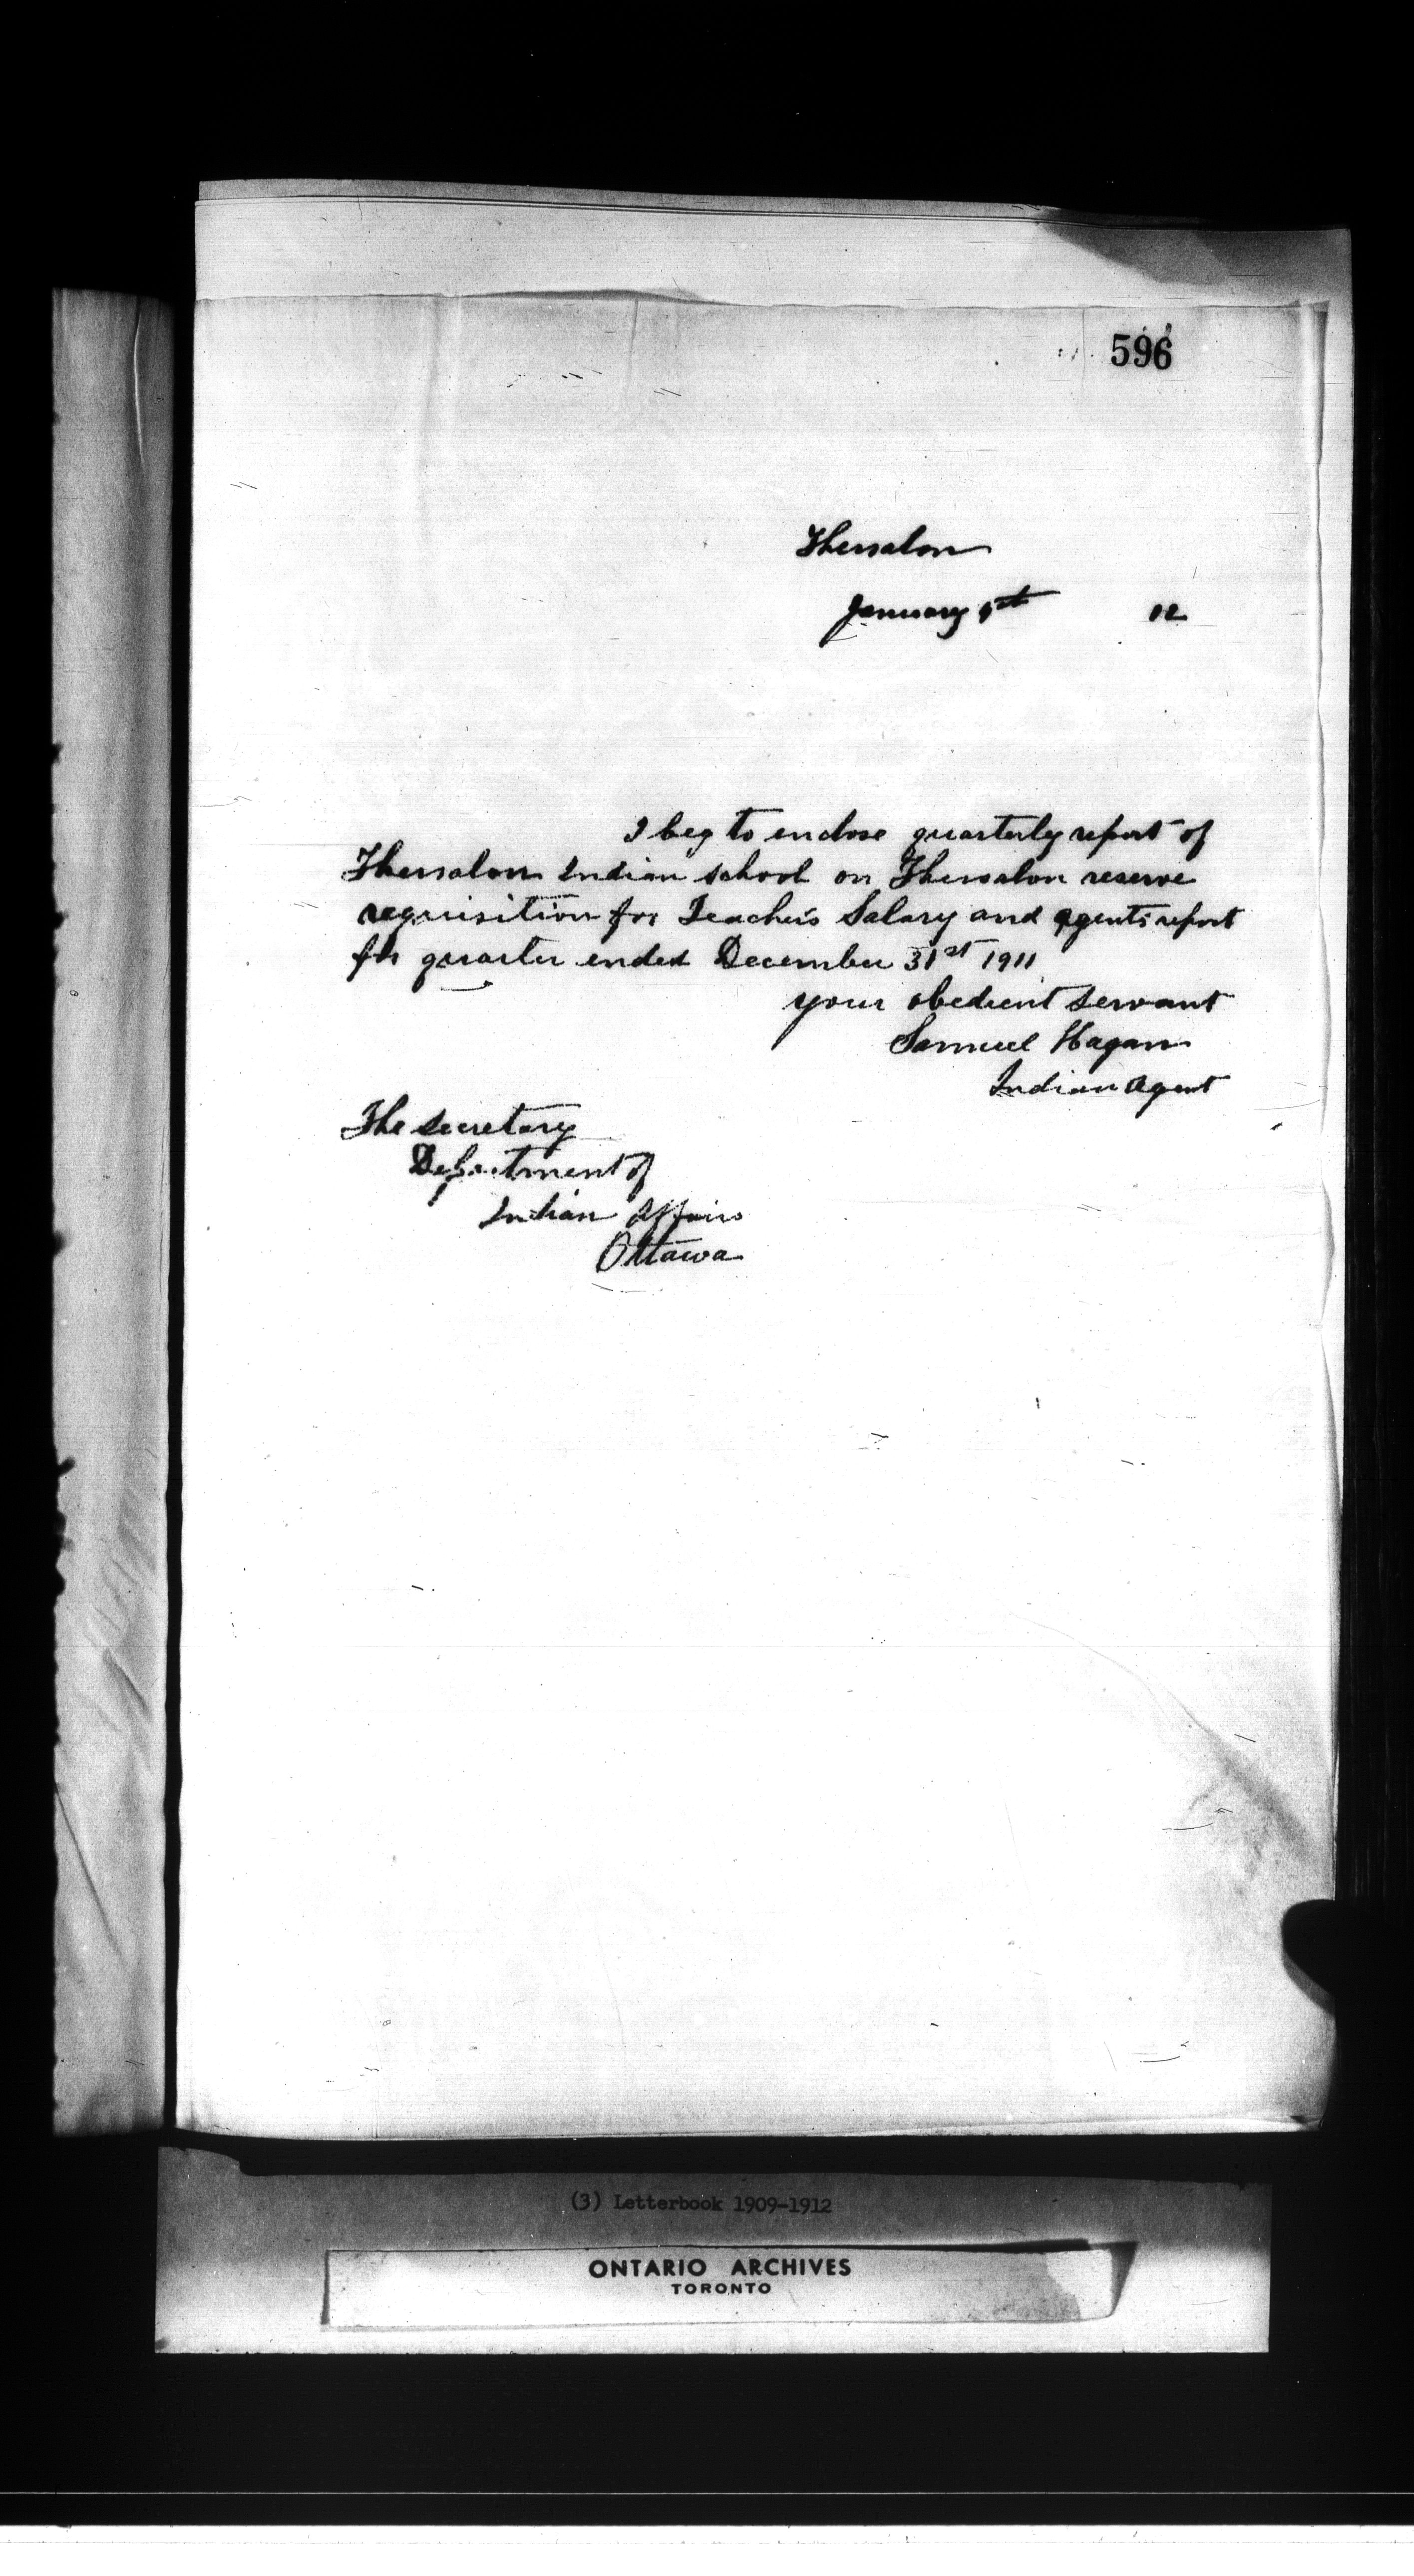 596
Thessalon
January 1st 12
I beg to enclose quarterly report of
Thessalon Indian school on Thessalon reserve
requisition for Teacher's Salary and agents report
for quarter ended December 31st 1911
your obedient servant
Samuel Hagan
Indian Agent
The Secretary
Department of
Indian Affairs
Ottawa
(3) Letterbook 1909-1912
ONTARIO ARCHIVES
TORONTO